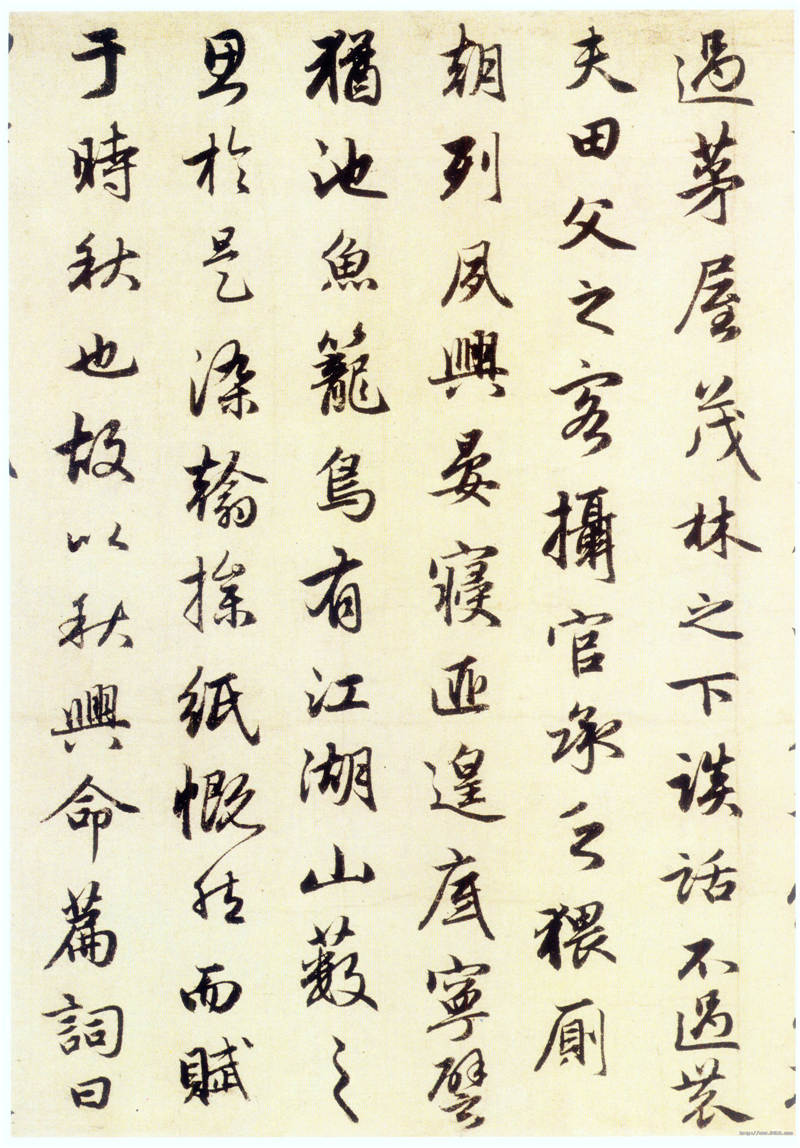 過茅屋茂林之下談話不過農
夫田父之客攝官承乏猥廁
朝列夙興晏寢匪遑底寧譬
猶池魚籠鳥有江湖山藪之
思於是染翰操紙慨然而賦
于時秋也故以秋興命篇詞曰